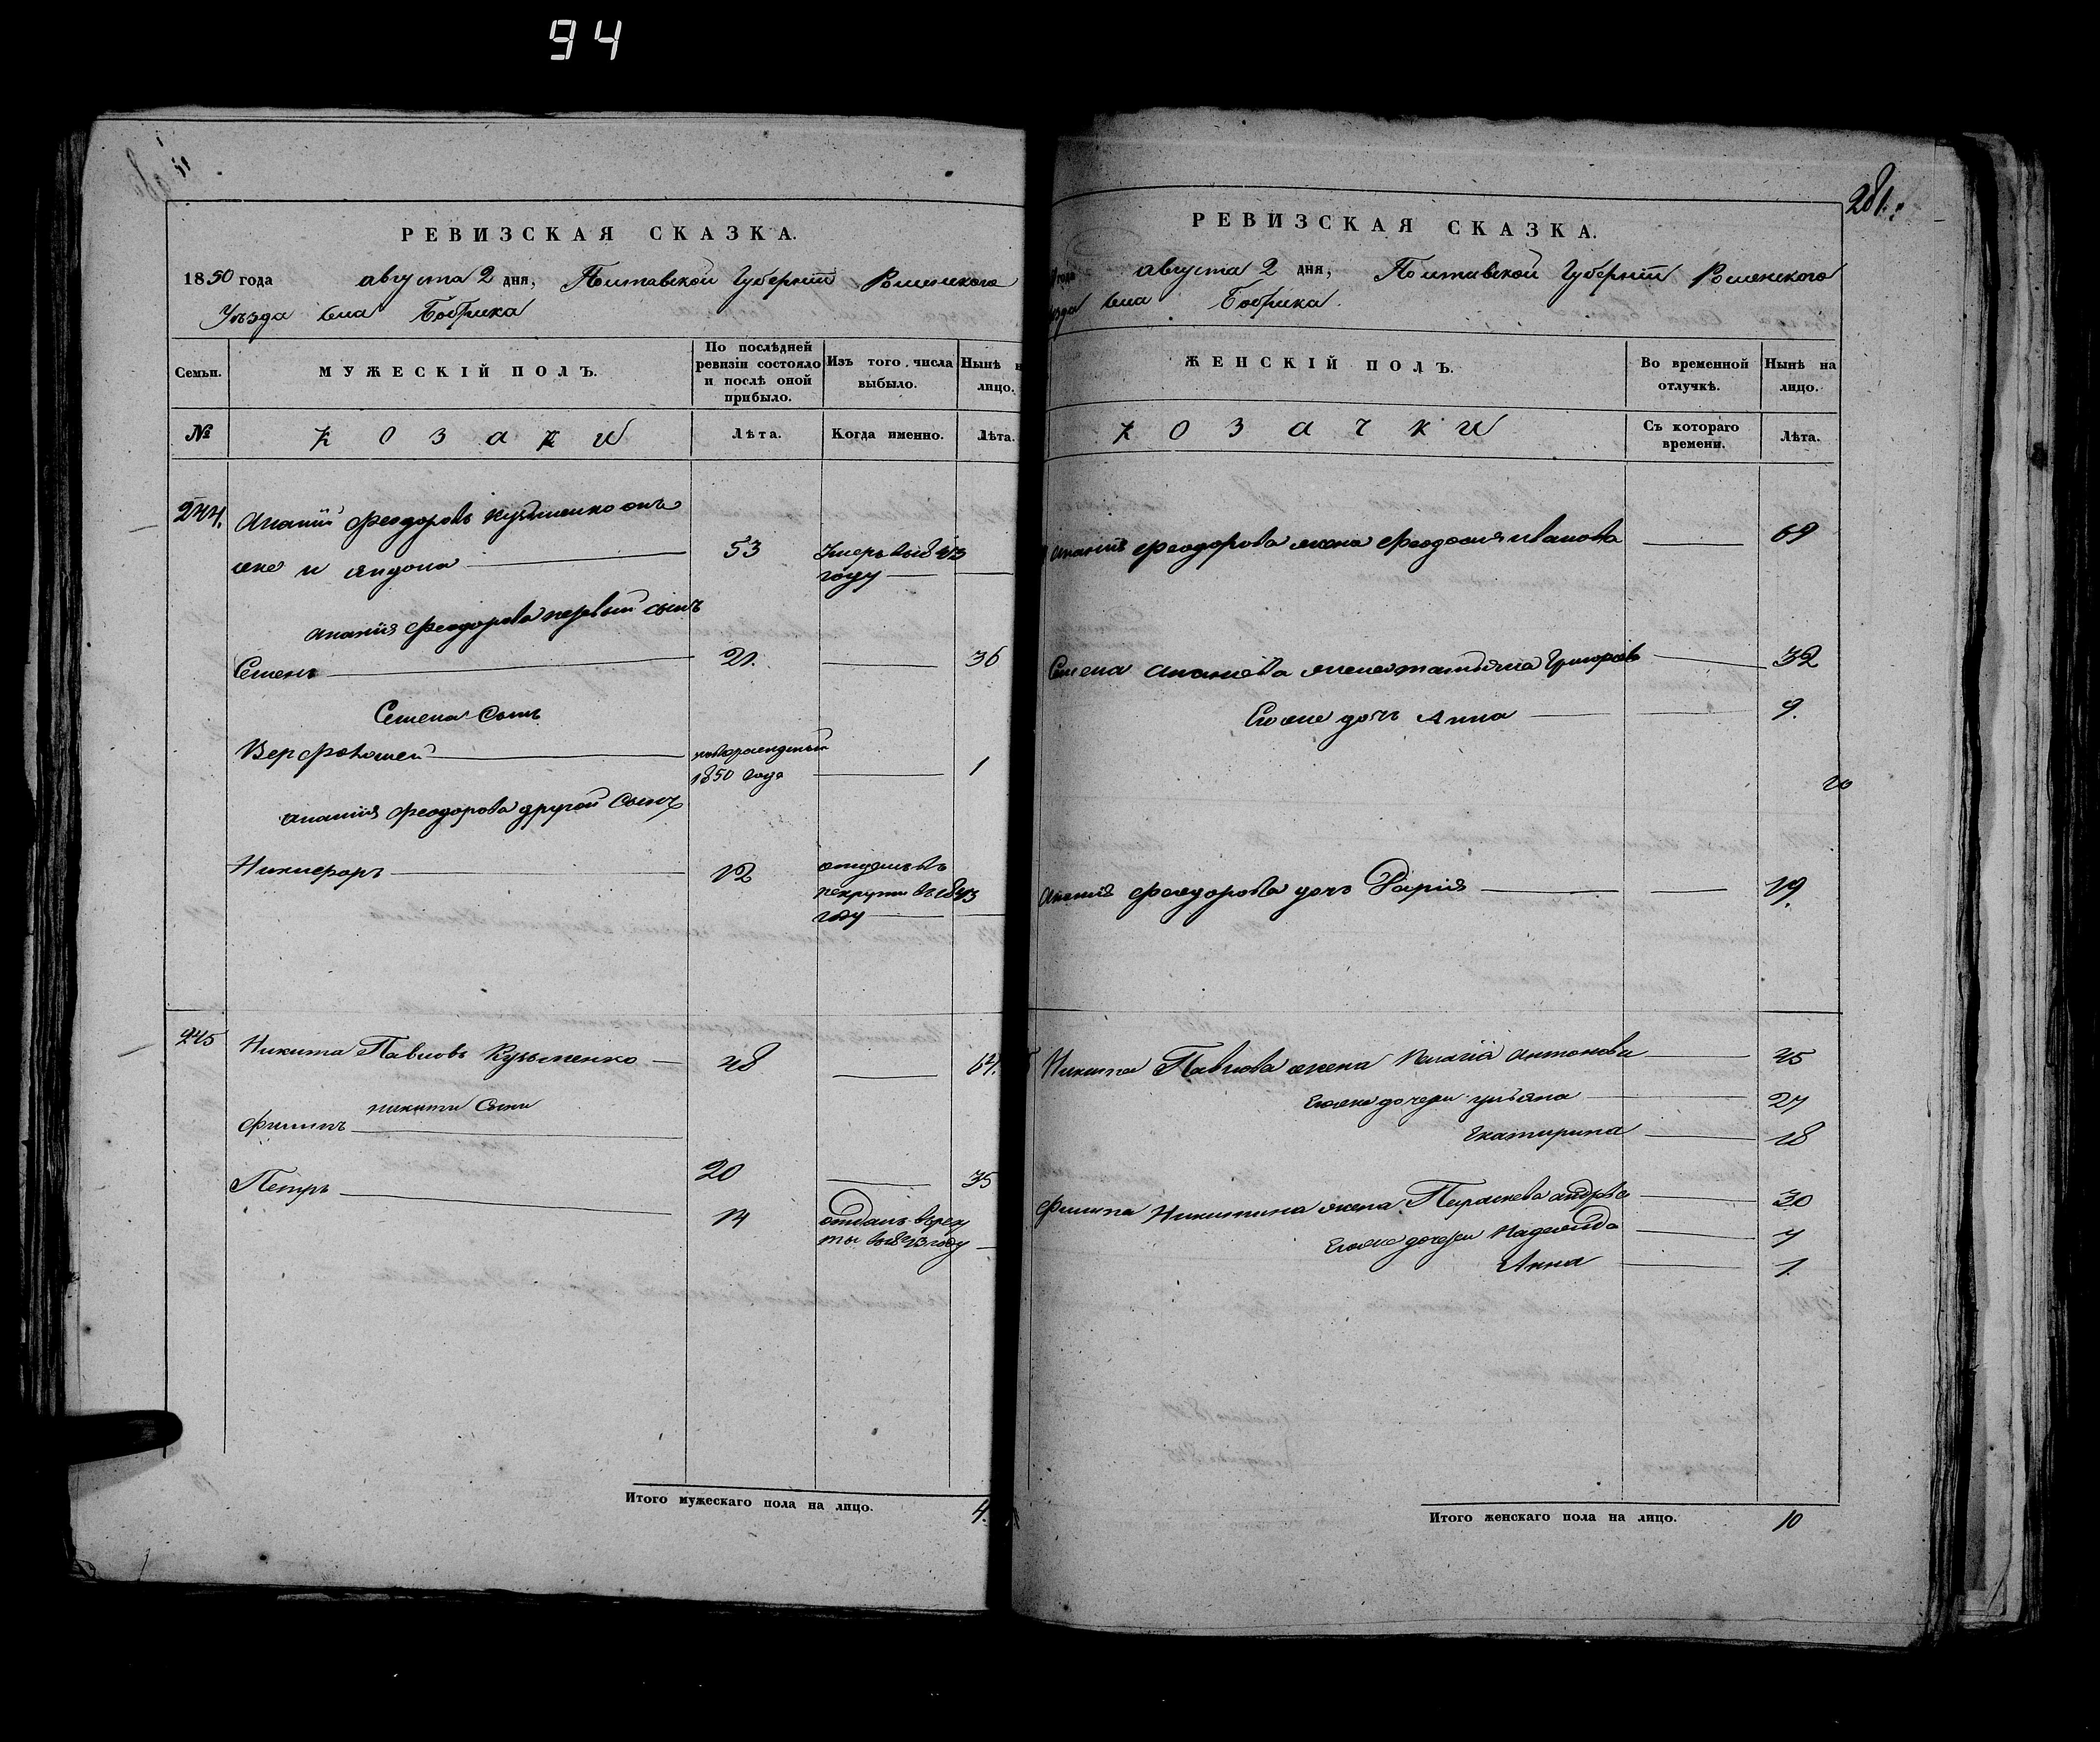 94
РЕВИЗСКАЯ СКАЗКА.
1850 года августа 2 дня, Полтавской Губернии Роменского
Уѣзда села Бобрика
Семьи.
МУЖЕСКІЙ ПОЛЪ.
По послѣдней ревизіи состояло и послѣ оной прибыло.
Изъ того числа выбыло.
Нынѣ н лицо.
№
Козаки
Лѣта.
Когда именно.
Лѣта.
244.
Ананій Феодоровъ Кузменко онъ
же и Яндола 53 Умеръ въ 1843
году
Ананія Феодорова первый сынъ
Семенъ 21. 36
Семена Сынъ
Верфоломей новорожденный
1850 года 1
Ананія Феодорова другой Сынъ
Никифоръ 12 отданъ въ
рекруты въ 1843
году
245 Никита Павловъ Кузьменко 48 64.
Никиты Сыны
Филипъ
20 35
Петръ
14 отданъ в рекру
ты въ 1843 году
Итого мужескаго пола на лицо. 4.
281.
РЕВИЗСКАЯ СКАЗКА.
года августа 2 дня, Полтавской Губерніи Роменского
ѣзда села Бобрика.
ЖЕНСКІЙ ПОЛЪ.
Во временной отлучкѣ.
Нынѣ на лицо.
Козачки
Съ котораго времени.
Лѣта.
Ананія Феодорова жена Феодосия Иванова 69
Семена Ананіева жена Татьяна Григорова 32
Его же дочь Анна 9.
Ананія Феодорова дочь Дарія 19.
Никиты Павлова жена Пелагія Антонова 45
Его же дочери Ульяна 27
Екатирина 18
Филипа Никитина жена Параскева 30
Его же дочери Надежда 7
Анна 1.
Итого женскаго пола на лицо. 10